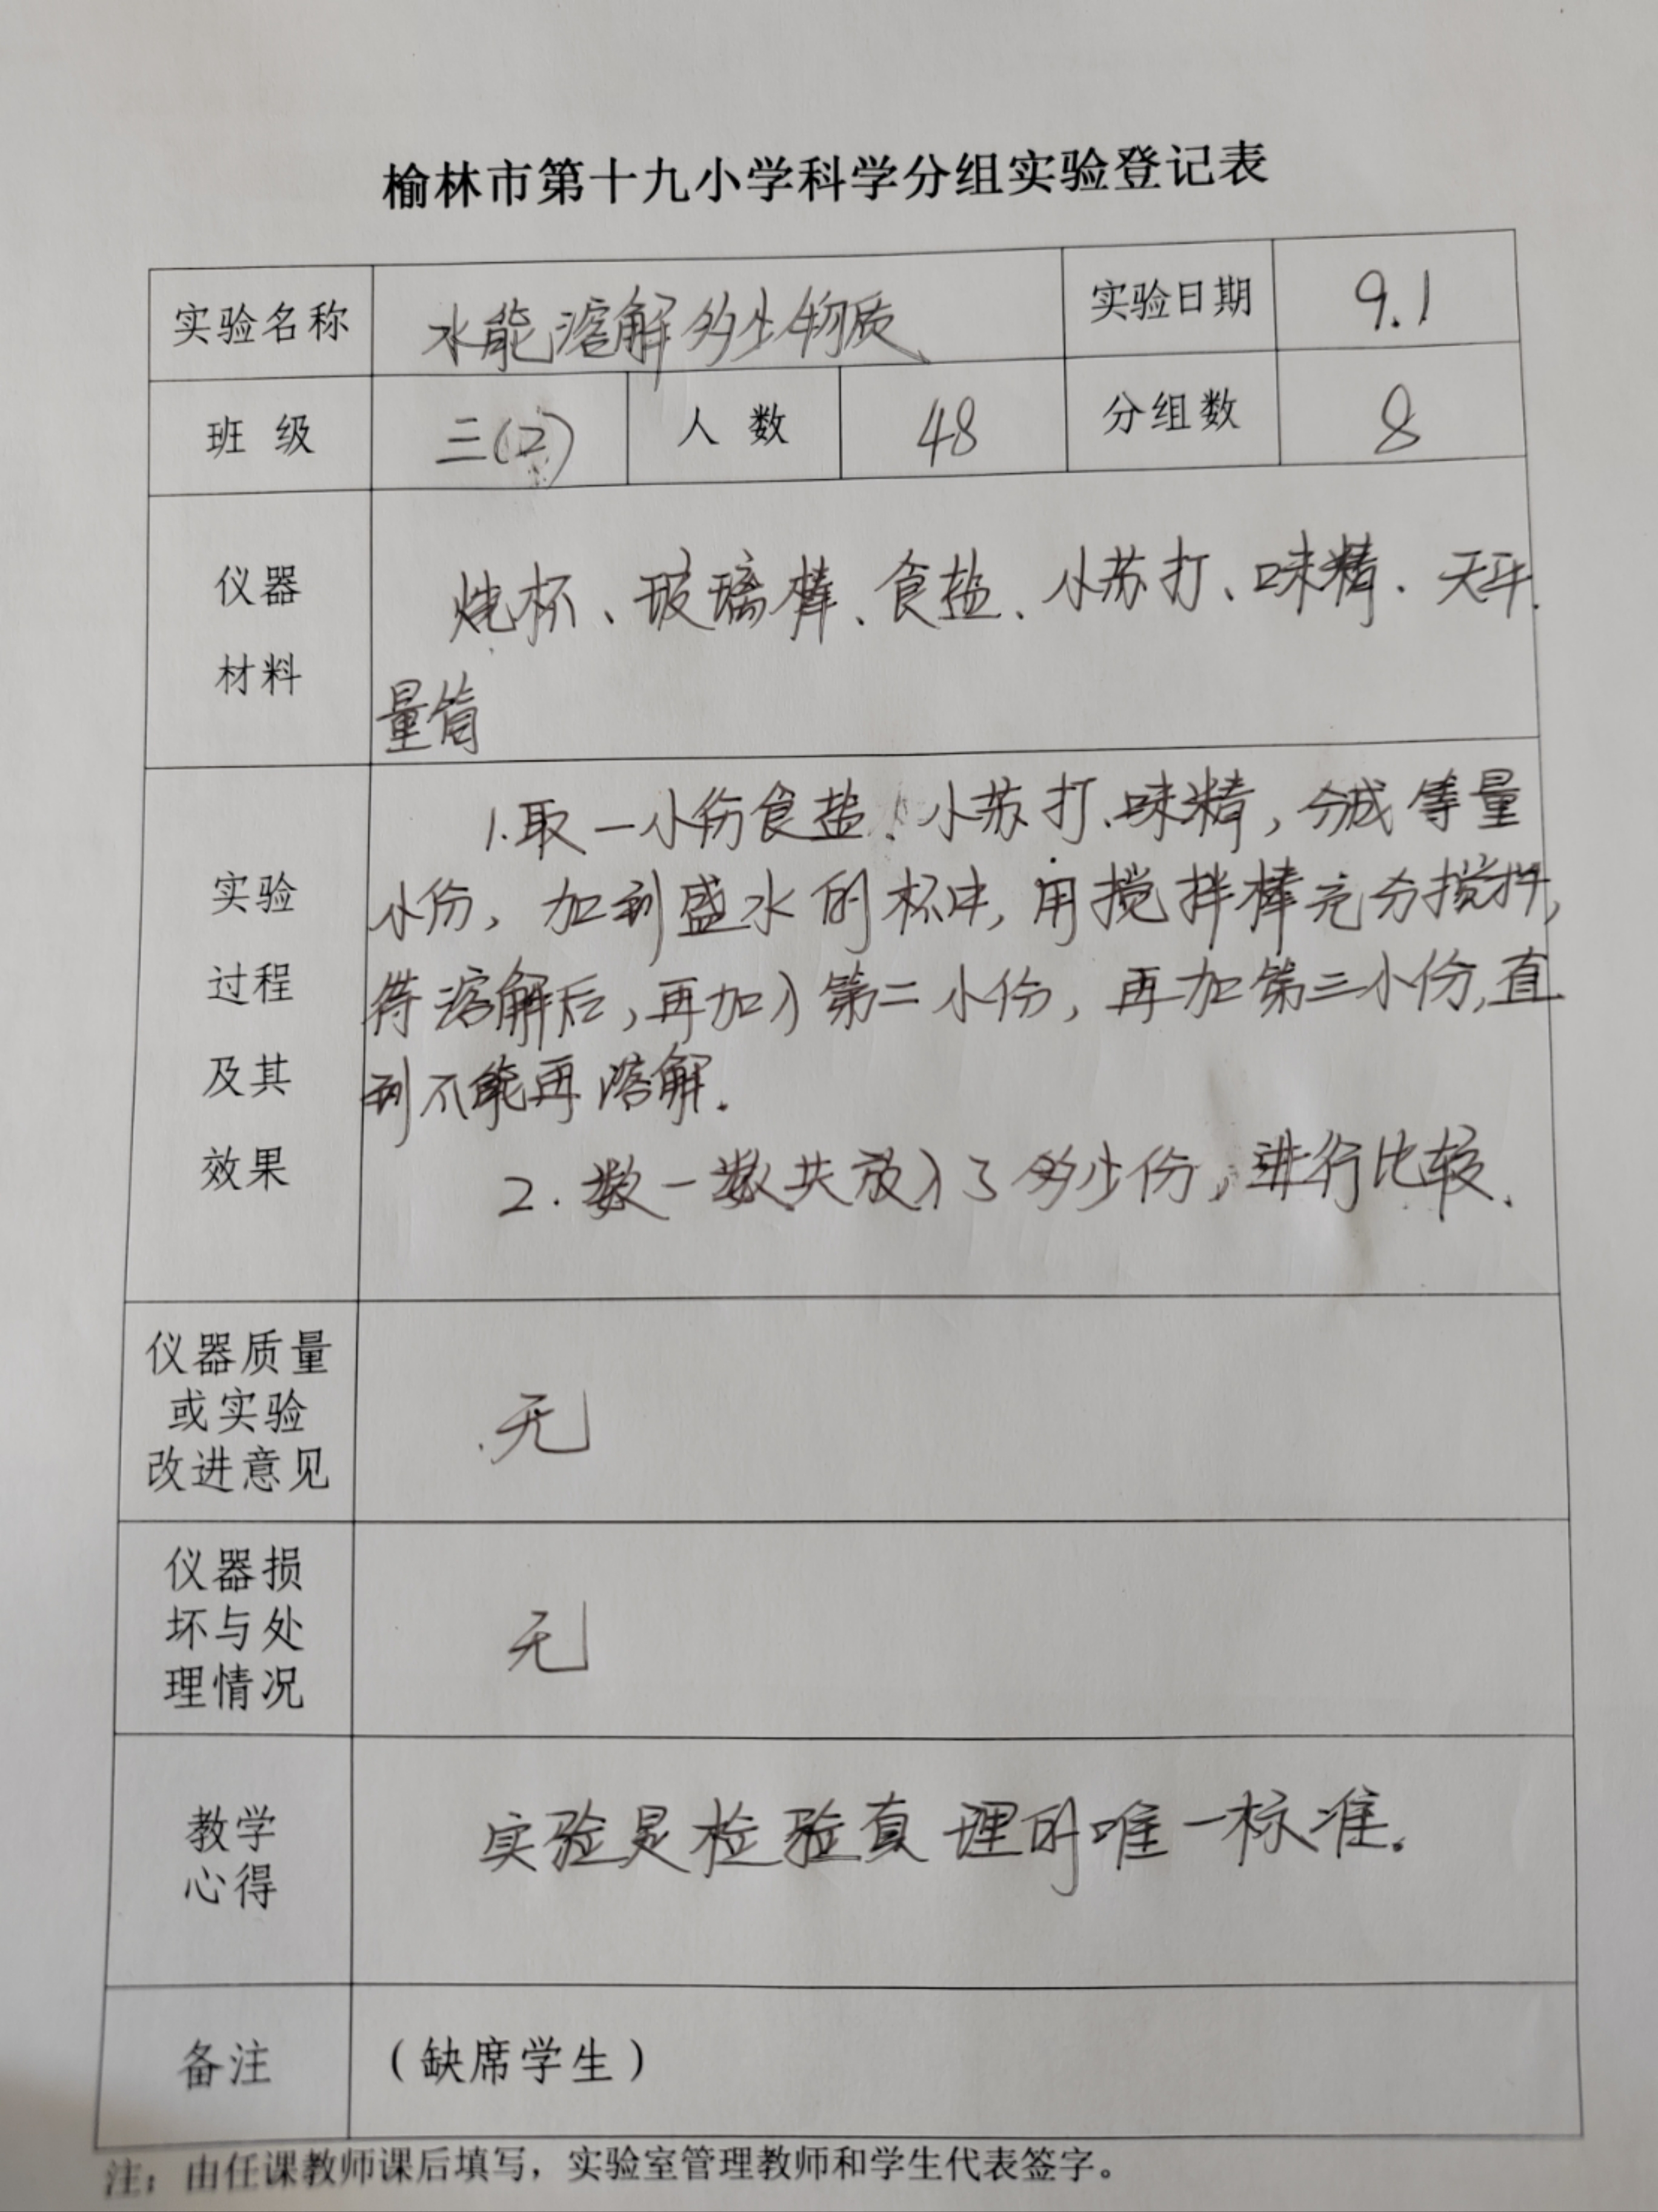 榆林市第十九小学科学分组实验登记表
实验名称 水能溶解多少物质 实验日期 9.1
班级 三(2) 人数 48 分组数 8
仪器
材料
烧杯、玻璃棒、食盐、小苏打、味精、天平、
量筒
实验
过程
及其
效果
1.取一小份食盐、小苏打、味精,分成等量
小份,加到盛水的杯中,用搅拌棒充分搅拌,
待溶解后,再加入第二小份,再加第三小份,直
到不能再溶解.
2.数一数共放入了多少份,进行比较.
仪器质量
或实验
改进意见
无
仪器损
坏与处
理情况
无
教学
心得
实验是检验真理的唯一标准.
备注 (缺席学生)
注:由任课教师课后填写,实验室管理教师和学生代表签字。